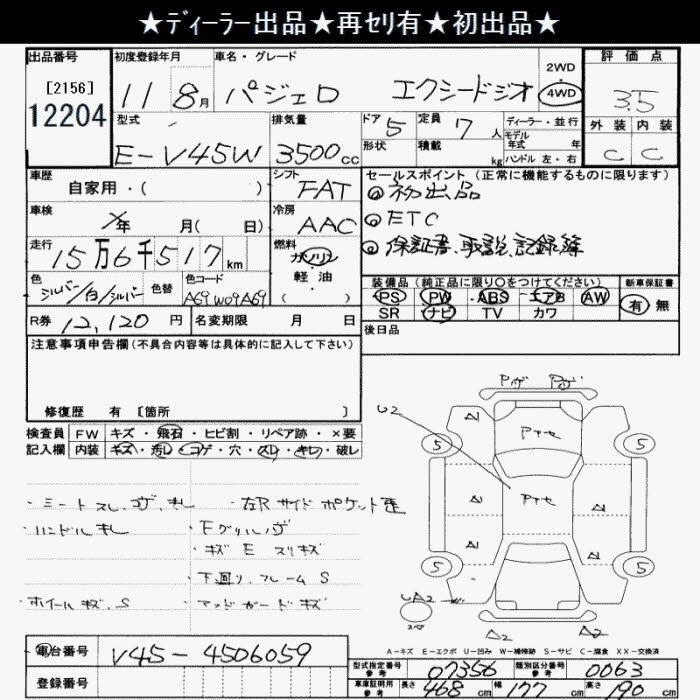 ★ディーラー出品★再セリ有★初出品★
出品番号
[2156]
12204
初度登録年月
11 8月
車名・グレード
パジェロ エクシードジオ
2WD
・
4WD
評価点
3.5
外装 内装
C C
型式
E-V45W
排気量
3500cc
ドア 5
形状
定員 7人
積載 kg
ディーラー・並行
モデル年式 年
ハンドル 左・右
車歴
自家用・( )
シフト
FAT
車検
年 月( 日)
冷房
AAC
走行
15万6千517km
燃料
ガソリン
軽・油
( )
色
シルバー/白/シルバー
色替
色コード
A69 W09 A69
R券 12,120円
名変期限 月 日
セールスポイント(正常に機能するものに限ります)
◎初出品
◎ETC
◎保証書、取説、記録簿
装備品(純正品に限り○をつけてください)
PS PW ABS エアB AW
SR ナビ TV カワ
新車保証書
有 無
後日品
注意事項申告欄(不具合内容等は具体的に記入して下さい)
修復歴 有 [箇所 ]
検査員記入欄
FW キズ・飛石・ヒビ割・リペア跡・×要
内装 キズ・汚レ・コゲ・穴・スレ・キレ・破レ
・左Rサイドポケット歪
・ハンドルキレ
・キズ E スリキズ
・下回り、フレーム S
・ホイールキズ、S
・マッドガードキズ
U2
5
5
5
5
UA2
スペア
A2
A2
A-キズ E-エクボ U-凹み W-補修跡 S-サビ C-腐食 XX-交換済
車台番号
V45-4506059
登録番号
型式指定番号参考 07356
類別区分番号参考 0063
車庫証明用参考 長さ 468cm 幅 177cm 高さ 190cm